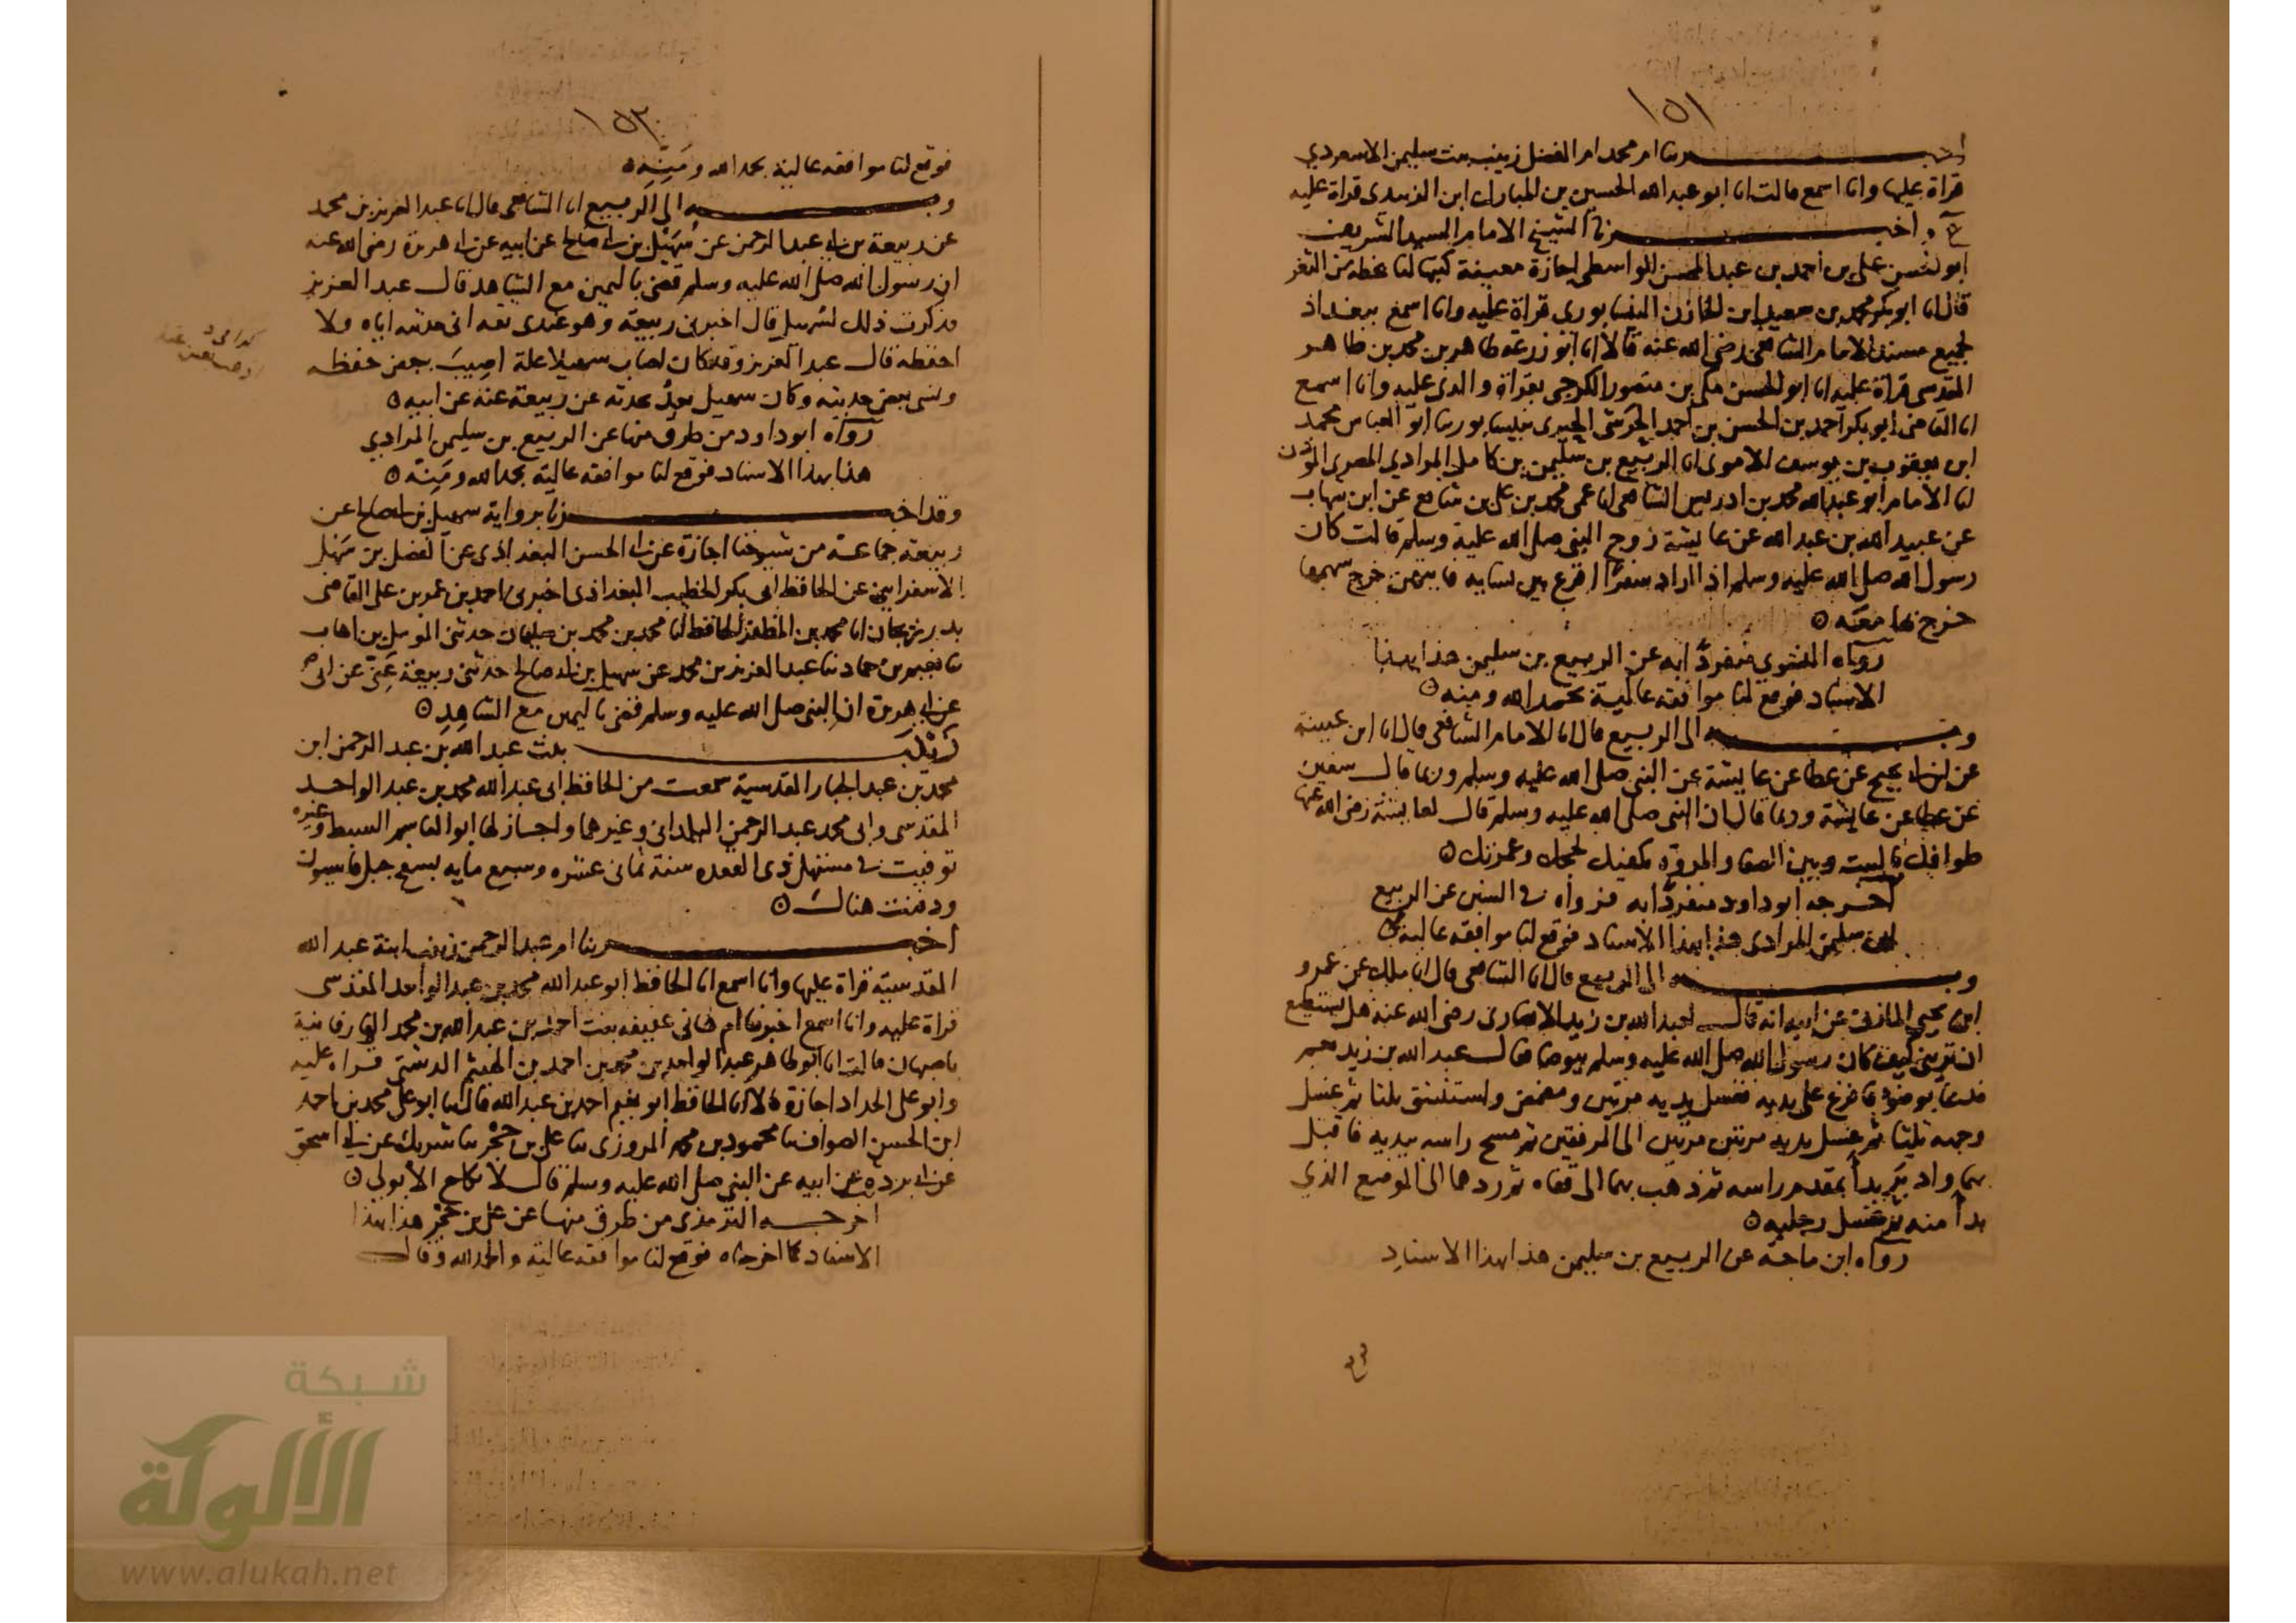 ١٥١
اخبرتنا ام محمد ام الفضل زينب بنت سليمن الاسعردي
قراة عليها وانا اسمع قالت انا ابو عبد الله الحسين بن المبارك ابن الزبيدي قراة عليه
ح واخبرنا الشيخ الامام السيد الشريف
ابو الحسن علي بن احمد بن عبد المحسن الواسطي اجازة معينة كتبها لنا بخطه من الثغر
قال انا ابو بكر محمد بن سعيد ابن الخازن النيسابوري قراة عليه وانا اسمع ببغداذ
لجميع مسند الامام الشافعي رضي الله عنه قالا انا ابو زرعة طاهر بن محمد بن طاهر
المقدسي قراة عليه انا ابو الحسن مكي بن منصور الكرجي بقراة والدي عليه وانا اسمع
انا القاضي ابو بكر احمد بن الحسن بن احمد الحرشي الحيري بنيسابور ثنا ابو العباس محمد
ابن يعقوب بن يوسف الاموي انا الربيع بن سليمن بن كامل المرادي المصري الموذن
انا الامام ابو عبد الله محمد بن ادريس الشافعي انا عمي محمد بن علي بن شافع عن ابن شهاب
عن عبيد الله بن عبد الله عن عايشة زوج النبي صلى الله عليه وسلم قالت كان
رسول الله صلى الله عليه وسلم اذا اراد سفرًا اقرع بين نسايه فايتهن خرج سهمها
خرج بها معه ٥
رواه منفردًا به عن الربيع بن سليمن هذا بهذا
الاسناد فوقع لنا موافقه عالية بحمد الله ومنه ٥
وبه الى الربيع قال انا الامام الشافعي قال انا ابن عيينة
عن ابن ابي نجيح عن عطا عن عايشة عن النبي صلى الله عليه وسلم وربما قال سفين
عن عطا عن عايشة وربما قال ان النبي صلى الله عليه وسلم قال لعايشة رضي الله عنها
طوافك بالبيت وبين الصفا والمروة يكفيك لحجك وعمرتك ٥
اخرجه ابو داود منفردًا به فرواه في السنن عن الربيع
ابن سليمن المرادي هذا بهذا الاسناد فوقع لنا موافقه عالية
وبه الى الربيع قال انا الشافعي قال انا ملك عن عمرو
ابن يحيى المازني عن ابيه انه قال لعبد الله بن زيد الانصاري رضي الله عنه هل تستطيع
ان تريني كيف كان رسول الله صلى الله عليه وسلم يتوضا فقال عبد الله بن زيد نعم
فدعا بوضوء فافرغ على يديه فغسل يديه مرتين ومضمض واستنشق ثلثا ثم غسل
وجهه ثلثا ثم غسل يديه مرتين مرتين الى المرفقين ثم مسح راسه بيديه فاقبل
بهما وادبر بدأ بمقدم راسه ثم ذهب بهما الى قفاه ثم ردهما الى الموضع الذي
بدأ منه ثم غسل رجليه ٥
رواه ابن ماجة عن الربيع بن سليمن هذا بهذا الاسناد
١٥٢
فوقع لنا موافقه عالية بحمد الله ومَنِّه ٥
وبه الى الربيع انا الشافعي قال انا عبد العزيز بن محمد
عن ربيعة بن ابي عبد الرحمن عن سُهَيْل بن ابي صالح عن ابيه عن ابي هريرة رضي الله عنه
ان رسول الله صلى الله عليه وسلم قضى باليمين مع الشاهد قال عبد العزيز
فذكرت ذلك لسهيل قال اخبرني ربيعة وهو عندي ثقه اني حدثته اياه ولا
احفظه قال عبد العزيز وقد كان اصاب سهيلا علة اصيبَ ببعض حفظه
ونسي بعض حديثه وكان سهيل بعدُ يحدثه عن ربيعة عنه عن ابيه ٥
رواه ابو داود من طرق منها عن الربيع بن سليمن المرادي
هذا بهذا الاسناد فوقع لنا موافقه عالية بحمد الله ومَنِّه ٥
وقد اخبرنا برواية سهيل بن ابي صالح عن
ربيعة جماعة من شيوخنا اجازة عن ابي الحسن البغداذي عن الفضل بن سَهْل
الاسفرايني عن الحافظ ابي بكر الخطيب البغداذي اخبرني احمد بن عمر بن علي القاضي
بدرزيجان انا محمد بن المظفر الحافظ انا محمد بن محمد بن سليمان حدثني المومل بن اهاب
ثنا نعيم بن حماد ثنا عبد العزيز بن محمد عن سهيل بن ابي صالح حدثني ربيعة عَنّي عن ابي
عن ابي هريرة ان النبي صلى الله عليه وسلم قضى باليمين مع الشاهِدِ ٥
زَيْنَب بنت عبد الله بن عبد الرحمن ابن
محمد بن عبد الجبار المقدسية سمعت من الحافظ ابي عبد الله محمد بن عبد الواحد
المقدسي وابي محمد عبد الرحمن اليلداني وغيرهما واجاز لها ابو القاسم السبط وغيره
توفيت في مستهل ذي القعده سنة ثماني عشره وسبع مايه بسفح جبل قاسيون
ودفنت هناك ٥
اخبرتنا ام عبد الرحمن زينب ابنة عبد الله
المقدسية قراة عليها وانا اسمع انا الحافظ ابو عبد الله محمد بن عبد الواحد المقدسي
قراة عليه وانا اسمع اخبرتنا ام هاني عفيفه بنت احمد بن عبد الله بن محمد الفارفانية
باصبهان قالت انا ابو طاهر عبد الواحد بن محمد بن احمد بن الهيثم الدشتي قراه عليه
وابو علي الحداد اجازة قالا انا الحافظ ابو نعيم احمد بن عبد الله قال انا ابو علي محمد بن احمد
ابن الحسن الصواف ثنا محمود بن محمد المروزي ثنا علي بن حُجْر ثنا شريك عن ابي اسحق
عن ابي بردة عن ابيه عن النبي صلى الله عليه وسلم قال لا نكاح الا بولي ٥
اخرجه الترمذي من طرق منها عن علي بن حُجْر هذا بهذا
الاسناد كما اخرجناه فوقع لنا موافقه عالية والحمد لله وقال
شبكة
الألوكة
www.alukah.net